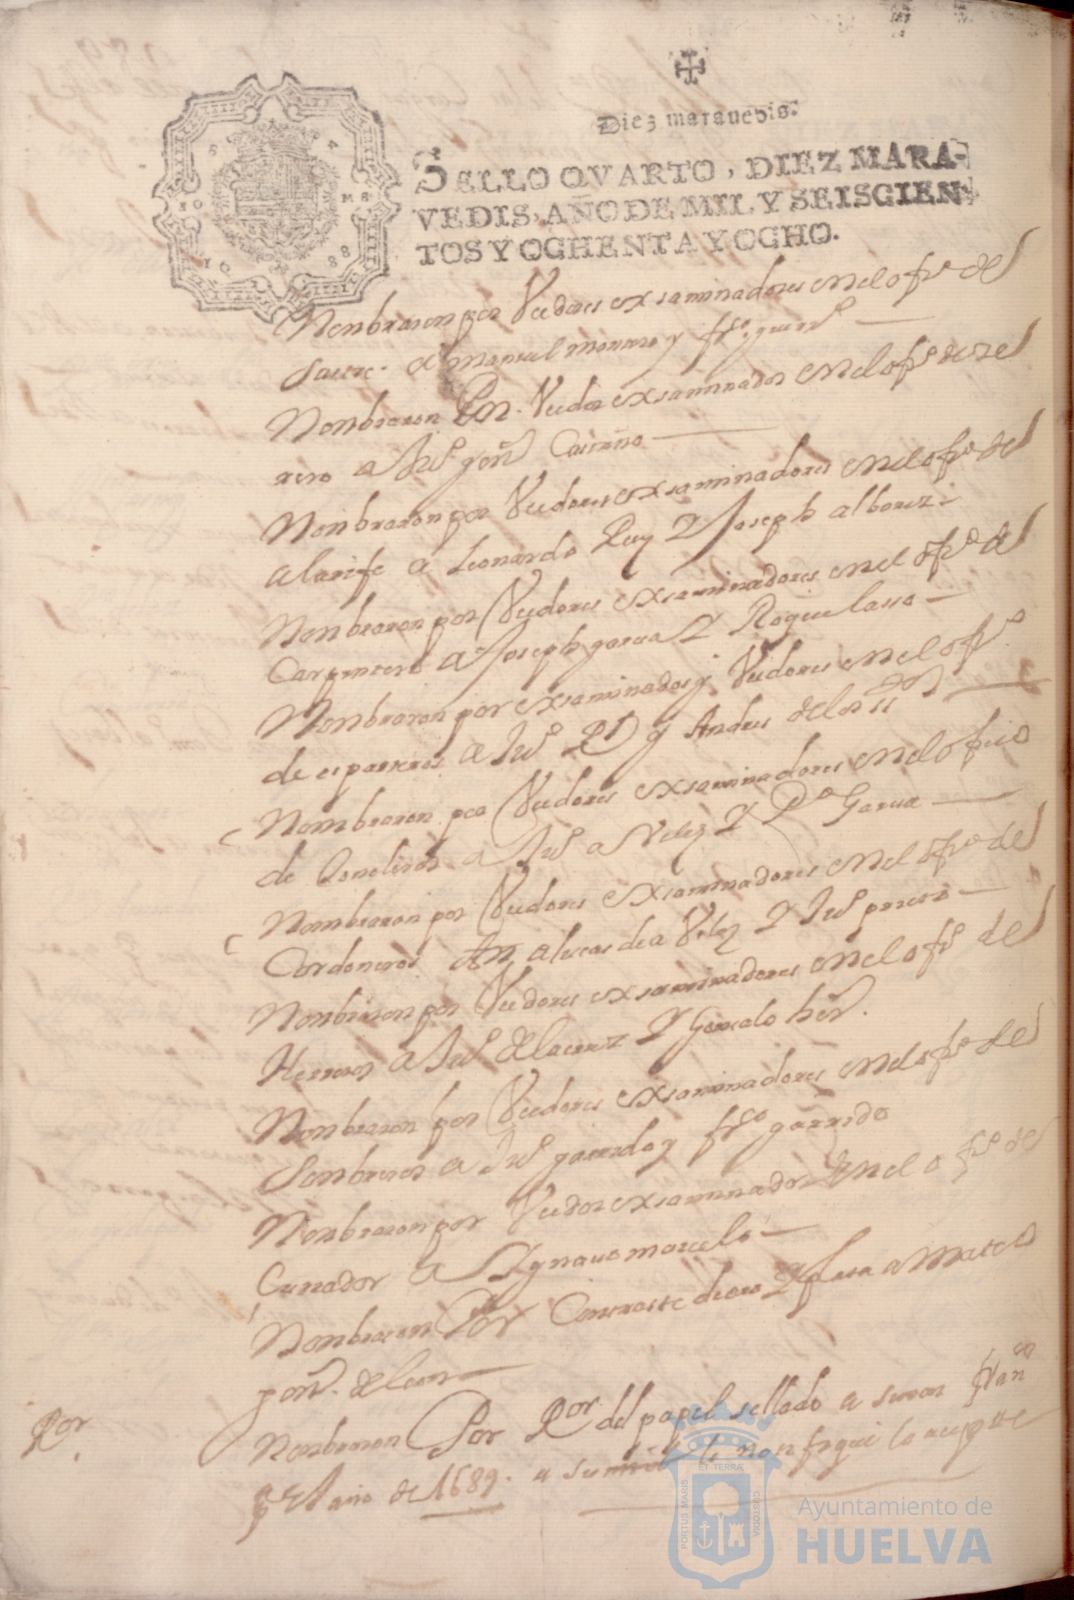 Diez marauedis.
SELLO QVARTO, DIEZ MARA-
VEDIS, AÑO DE MIL Y SEISCIEN-
TOS Y OCHENTA Y OCHO.
Nonbraron por Veedores exsaminadores en el ofiº del
Sastre a Manuel Montero y
Nonbraron Veedor exsaminador en el ofiº de
rero a Juº
Nonbraron por Veedores exsaminadores en el ofiº del
alarife a Leonardo Ruiz Y Joseph
Nonbraron por Veedores exsaminadores en el ofiº de
Carpintero a Joseph garcia Y Roque lasso
Nonbraron por exsaminador y Veedores en el ofiº
de esparteros a Juº y Andres de los
Nombraron por Veedores exsaminadores en el oficio
de toneleros a Juº a Velez Y Pº Garcia
Nonbraron por Veedores exsaminadores en el ofiº del
Cordoneros a lucas de a Velez Y Juº prieto
Nonbraron por Veedores exsaminadores en el ofiº del
Herreros a Juº de la cruz Y Gonzalo
Nonbraron por Veedores exsaminadores en el ofiº de
Sonbreros a Juº garrido y frº garrido
Nonbraron por Veedor exsaminador en el ofiº de
Curtidor a Ygnacio marcelo
Nonbraron Por Contraste de oro Y plata a Mateo
de leon
Ror
Nonbraron Por Ror del papel sellado a
el año de 1689.
PORTUS MARIS
ET TERRÆ
CUSTODIA
Ayuntamiento de
HUELVA